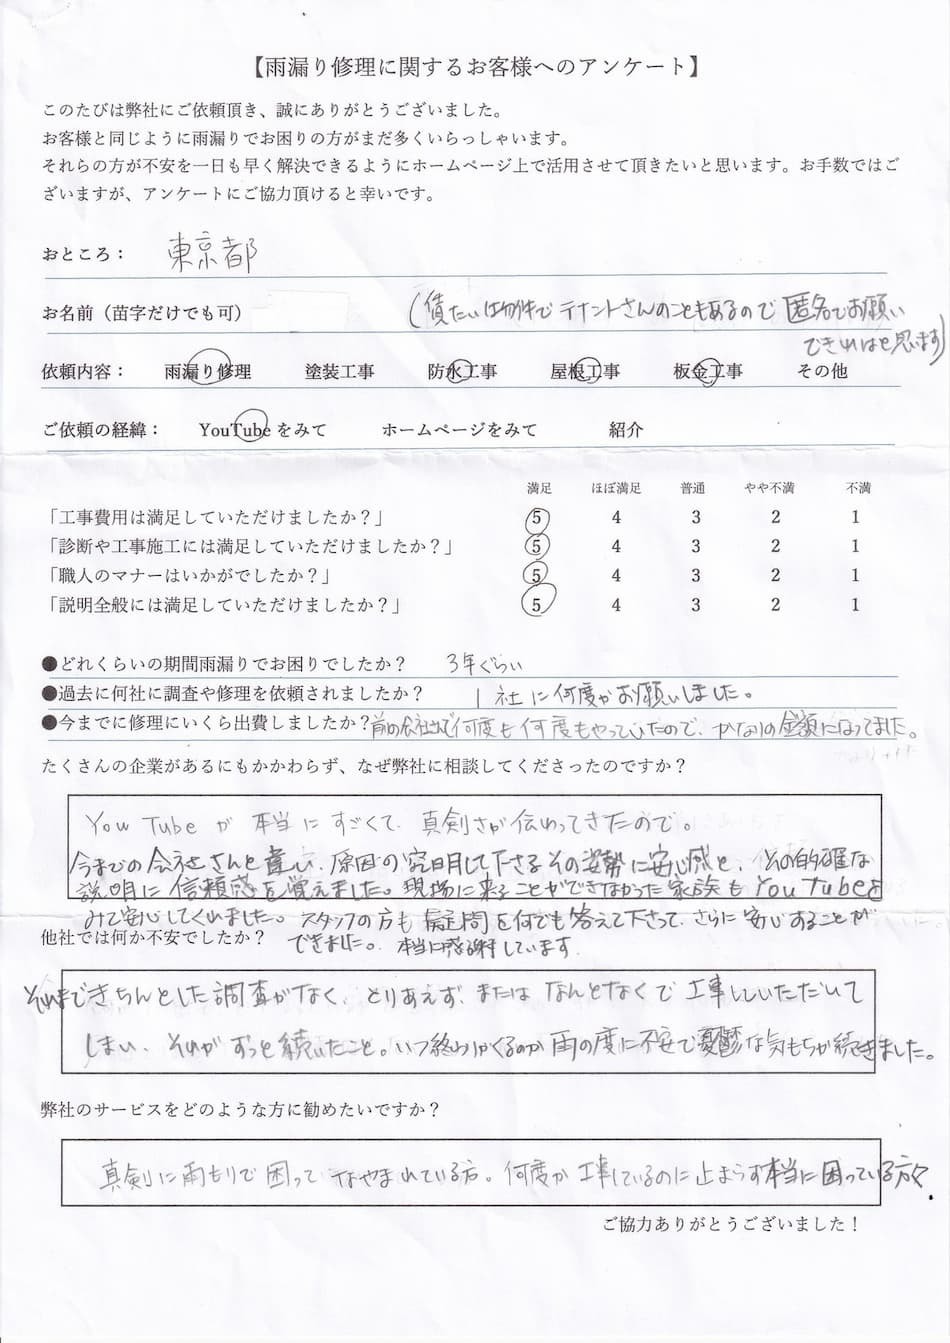 【雨漏り修理に関するお客様へのアンケート】
このたびは弊社にご依頼頂き、誠にありがとうございました。
お客様と同じように雨漏りでお困りの方がまだ多くいらっしゃいます。
それらの方が不安を一日も早く解決できるようにホームページ上で活用させて頂きたいと思います。お手数ではご
ざいますが、アンケートにご協力頂けると幸いです。
おところ： 東京都
お名前（苗字だけでも可） (賃たい物件でテナントさんのこともあるので匿名でお願い
できればと思います)
依頼内容： 雨漏り修理 塗装工事 防水工事 屋根工事 板金工事 その他
ご依頼の経緯： YouTubeをみて ホームページをみて 紹介
満足 ほぼ満足 普通 やや不満 不満
「工事費用は満足していただけましたか？」 5 4 3 2 1
「診断や工事施工には満足していただけましたか？」 5 4 3 2 1
「職人のマナーはいかがでしたか？」 5 4 3 2 1
「説明全般には満足していただけましたか？」 5 4 3 2 1
●どれくらいの期間雨漏りでお困りでしたか？ 3年ぐらい
●過去に何社に調査や修理を依頼されましたか？ 1社に何度かお願いしました。
●今までに修理にいくら出費しましたか？前の会社さんで何度も何度もやっていたので、かなりの金額になってました。
たくさんの企業があるにもかかわらず、なぜ弊社に相談してくださったのですか？
YouTubeが本当にすごくて、真剣さが伝わってきたので。
今までの会社さんと違い、原因の究明して下さるその姿勢に安心感と、その的確な
説明に信頼感を覚えました。現場に来ることができなかった家族もYouTubeを
みて安心してくれました。スタッフの方も質問を何でも答えて下さって、さらに安心することが
できました。本当に感謝しています。
他社では何か不安でしたか？
それまできちんとした調査がなく、とりあえず、または なんとなくで工事していただいて
しまい、それがずっと続いたこと。いつ終わりがくるのか雨の度に不安で憂鬱な気もちが続きました。
弊社のサービスをどのような方に勧めたいですか？
真剣に雨もりで困ってなやまれている方。何度か工事しているのに止まらず本当に困っている方々.
ご協力ありがとうございました！